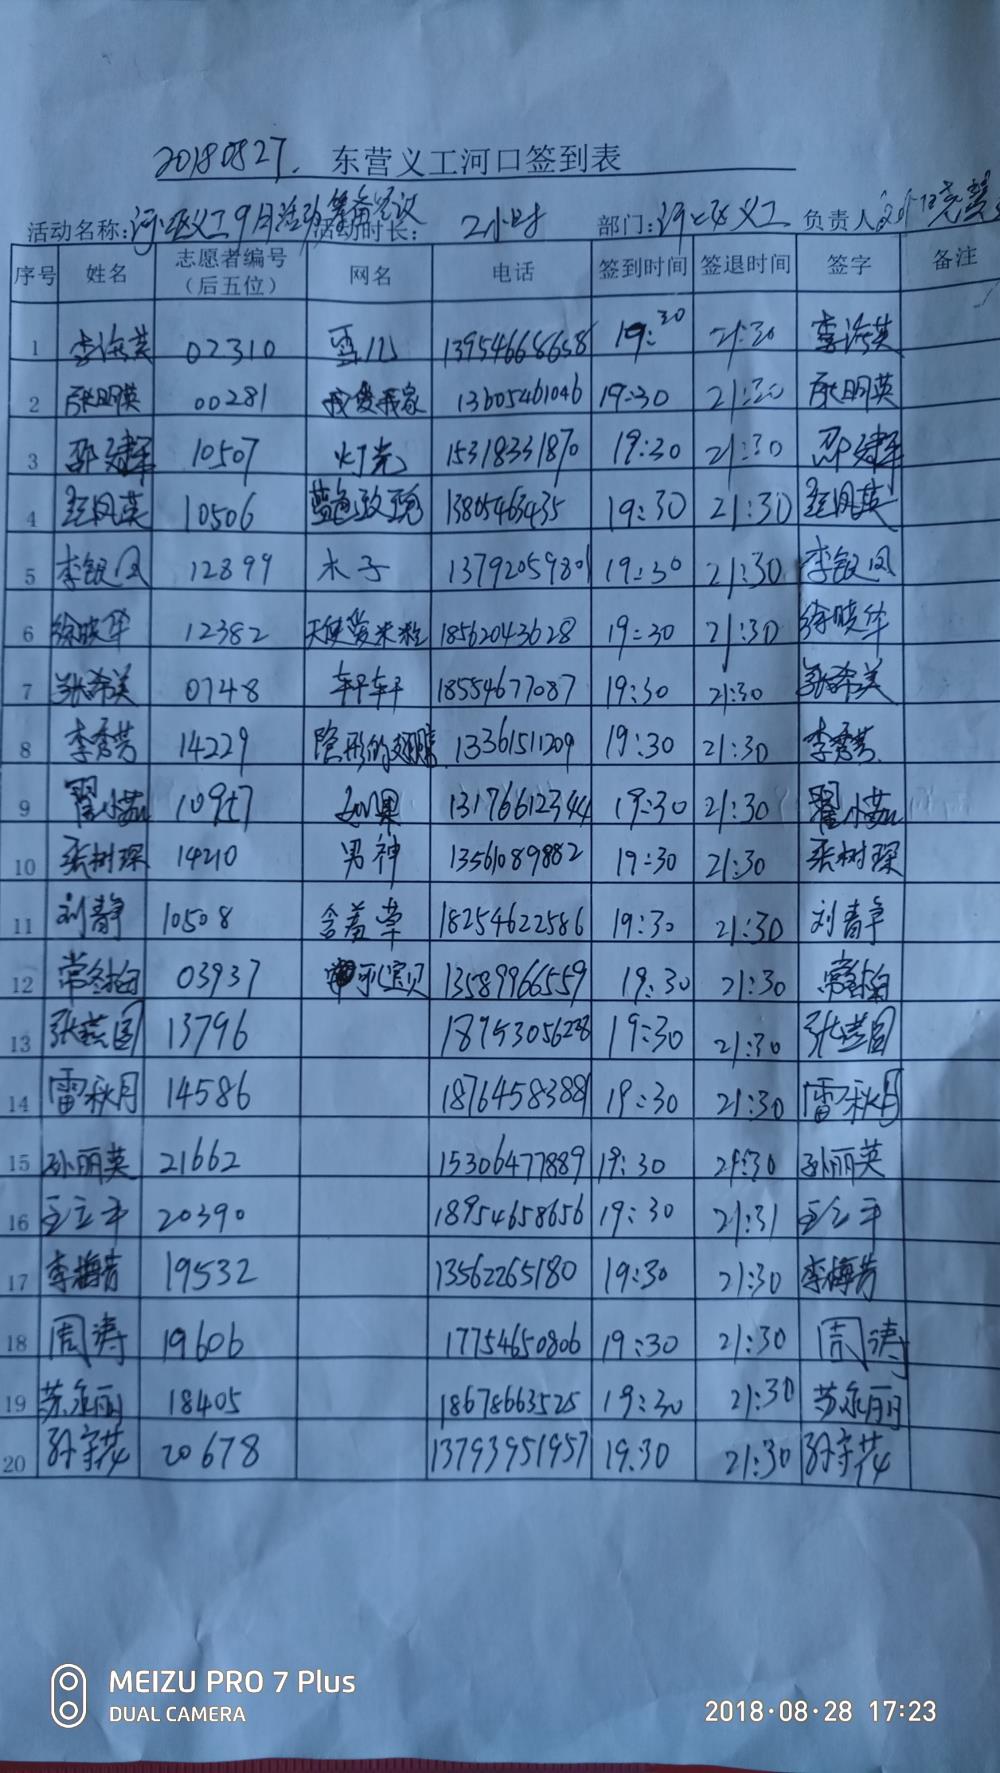 20180827. 东营义工河口签到表
活动名称:河口义工9月活动筹备会议 活动时长: 2小时 部门:河口义工 负责人
序号 姓名 志愿者编号（后五位） 网名 电话 签到时间 签退时间 签字 备注
1 李海英 02310 雪儿 13954668658 19:30 21:30 李海英
2 耿明英 00281 我爱我家 13605461046 19:30 21:30 耿明英
3 邵建军 10507 灯光 15318331870 19:30 21:30 邵建军
4 赵凤英 10506 蓝色玫瑰 13805463435 19:30 21:30 赵凤英
5 李银凤 12899 木子 13792059801 19:30 21:30 李银凤
6 徐晓华 12382 天使爱米粒 18562043628 19:30 21:30 徐晓华
7 张希美 0748 轩轩 18554677087 19:30 21:30 张希美
8 李秀芳 14229 隐形的翅膀 13361511209 19:30 21:30 李秀芳
9 翟小茹 10957 如果 13176612344 19:30 21:30 翟小茹
10 张树琛 14210 男神 13561089882 19:30 21:30 张树琛
11 刘静 10508 含羞草 18254622586 19:30 21:30 刘静
12 常 03937 宝贝 13589966559 19:30 21:30 常
13 张 13796 18953056228 19:30 21:30 张
14 雷秋月 14586 18764583881 19:30 21:30 雷秋月
15 孙丽英 21662 15306477889 19:30 21:30 孙丽英
16 王立平 20390 18954658656 19:30 21:31 王立平
17 李梅芳 19532 13562265180 19:30 21:30 李梅芳
18 周涛 19606 17754650806 19:30 21:30 周涛
19 苏永丽 18405 18678663525 19:30 21:30 苏永丽
20 孙守花 20678 13793951957 19:30 21:30 孙守花
MEIZU PRO 7 Plus
DUAL CAMERA
2018·08·28 17:23